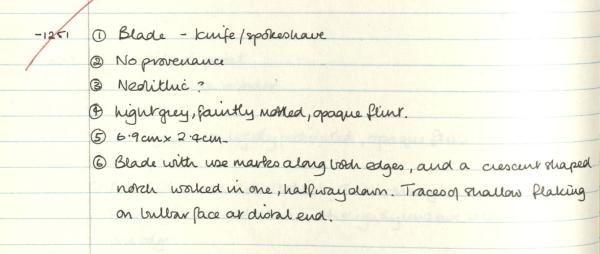 -1251 ① Blade - knife/spokeshave
② No provenance
③ Neolithic ?
④ Light grey, faintly mottled, opaque flint.
⑤ 6.9cm x 2.4cm
⑥ Blade with use marks along both edges, and a crescent shaped
notch worked in one, halfway down. Traces of shallow flaking
on bulbar face at distal end.